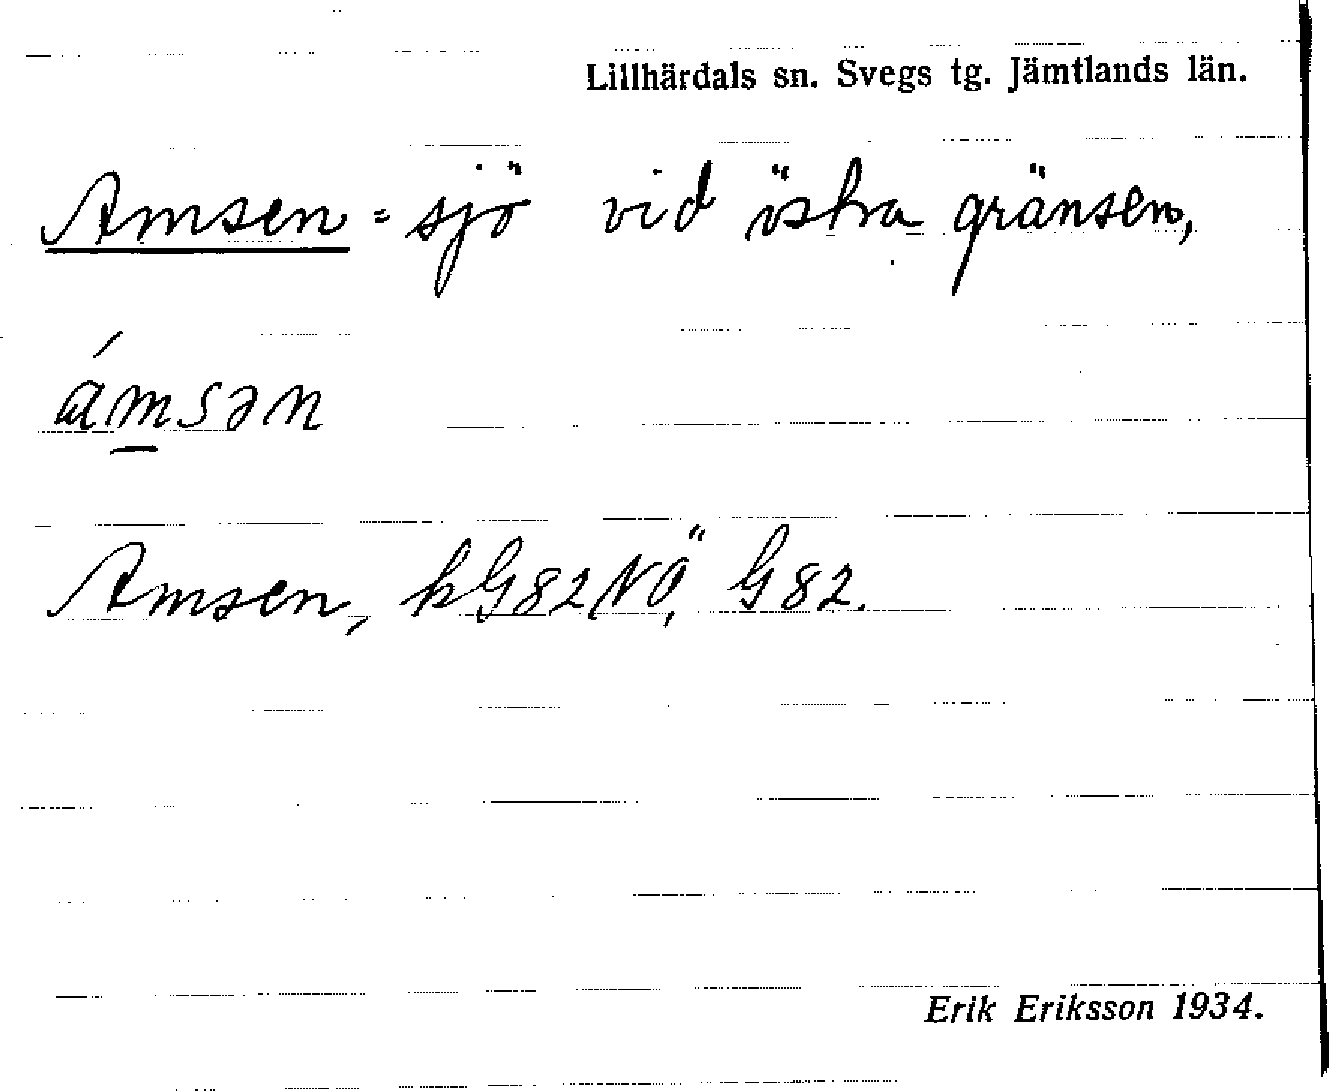 Lillhärdals sn. Svegs tg. Jämtlands län.
Amsen = sjö vid östra gränsen,
ám̲sən
Amsen, kG82NÖ, G82.
Erik Eriksson 1934.